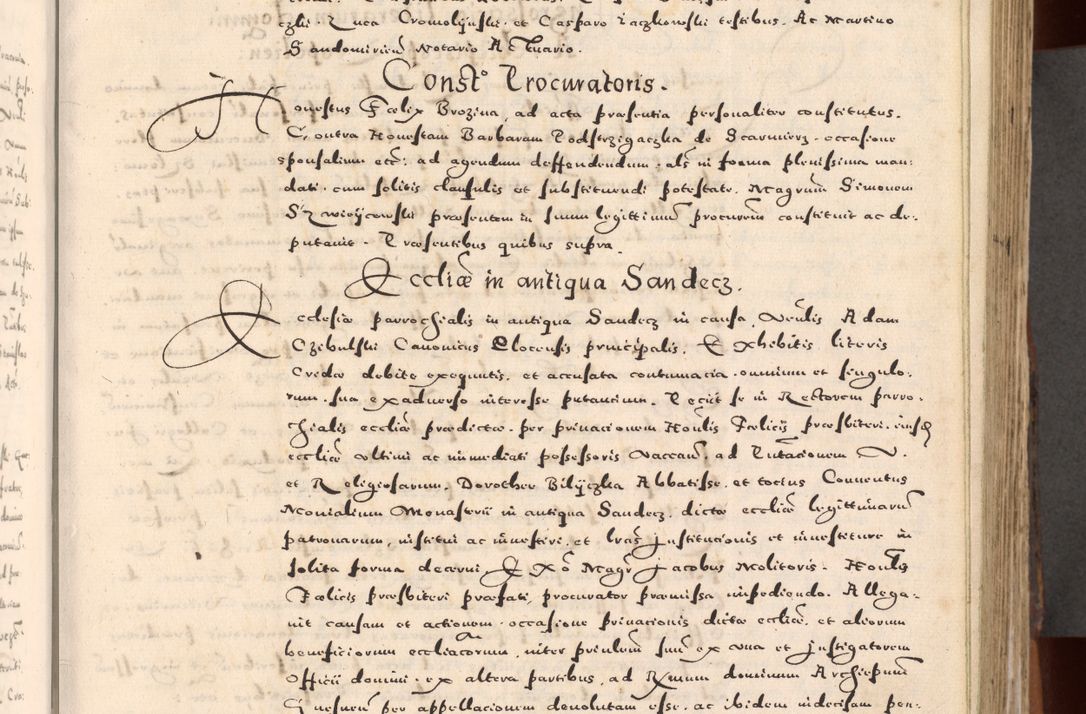 czki Luca Cromolynski. et Casparo Laczkowski testibus. Ac Martino
Sandomirien̄ Notario Actuario.
Const° Procuratoris.
Honestus Fœlix Brozina, ad acta præsentia personaliter constitutus.
Contra Honestam Barbaram Podstrzigaczka de Scarmierz. occasione
sponsalium etc: ad agendum deffendendum. als in forma plenissima man:
dati. cum solitis clausulis et substituendi potestate. Magrum Simonem
præsentem in suum legittimū procurem constituit ac de:
putauit. Præsentibus quibus supra.
Eccliæ in antiqua Sandecz.
Ecclesiæ parrochialis in antiqua Sandecz in causa, Venlis Adam
Czebulski Canonicus Plocensis principalis. Exhibitis literis
Credæ debite exequutis. et accusata contumacia. omnium et singulo:
rum. sua exaduerso interesse putantium. Peciit se in Rectorem parro:
chialis eccliæ prædictæ. per priuacionem Honlis Fœlicis præsbiteri. eiusd
eccliæ vltimi ac immediati possessoris vaccan̄. ad Pntacionem V.
et Religiosarum. Dorothee Bilyczka Abbatisse. et tocius Conuentus
Monialium Monasterii in antiqua Sandecz. dictæ eccliæ legittimarū
patronarum, institui ac inuestiri. et lras Institucionis et inuestiture in
solita forma decerni. Ex xo Magr Jacobus Molitoris. Honlis
Fœlicis præsbiteri præfati, procurator præmissa impediendo. Allega:
uit causam et actionem. occasione priuacionis dictæ eccliæ, et aliorum
beneficiorum eccliacorum, inter prinlem suū ex vna et Instigatorem
Officii domini. ex altera partibus, ad Rmum dominum Archiepum
Gnesnen̄ per appellacionem deuolutam esse. ac ibidem indecisam pen: